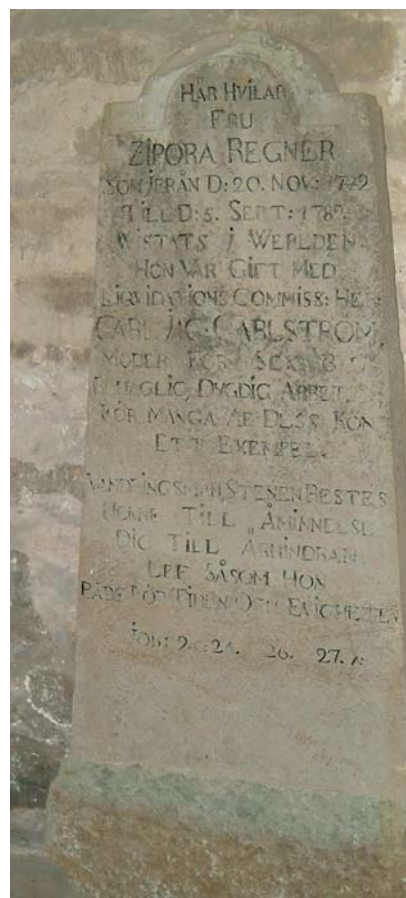 HÄR HVILAR
FRU
ZIPORA REGNER
SOM JFRÅN D: 20. NOV:
TILL D: 5. SEPT:
WISTATS J WERLDEN
HON VAR GIFT MED
LIQVIDATIONS COMMISS: HER:
CARL JAC: CARLSTRÖM,
MODER FÖR SEX B
BEHAGLIG, DYGDIG ARBET
FÖR MÅNGA AF DESS KÖN
ETT EXEMPEL.
VANDRINGSMAN, STENEN RESTES
HENNE TILL ÅMINNELSE
DIG TILL ÅRHINDRAN
LEF SÅSOM HON
BÅDE FÖR TIDEN OCH EVIGHETEN
JOB: 9. 24. 26. 27.